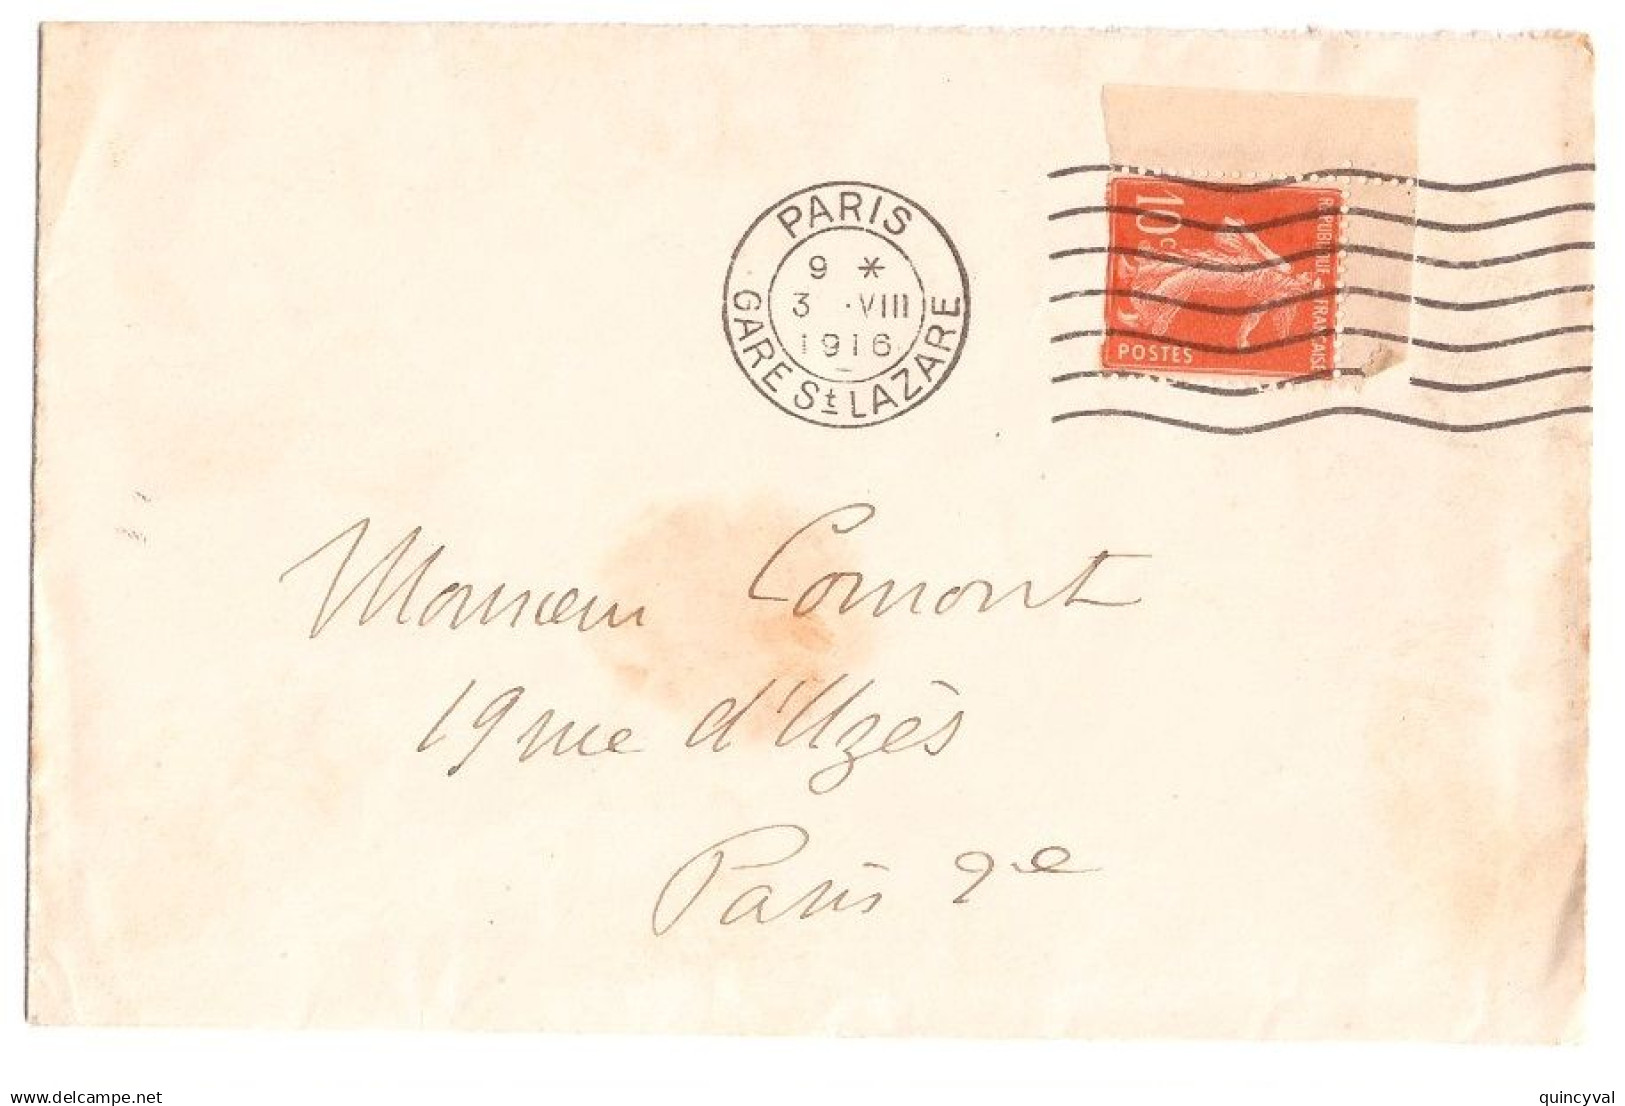 PARIS
9 *
3 .VIII
1916
GARE St LAZARE
10c
REPUBLIQUE FRANÇAISE
POSTES
Monsieur Comont
19 rue d'Uzès
Paris 2e
delcampe.net
quincyval